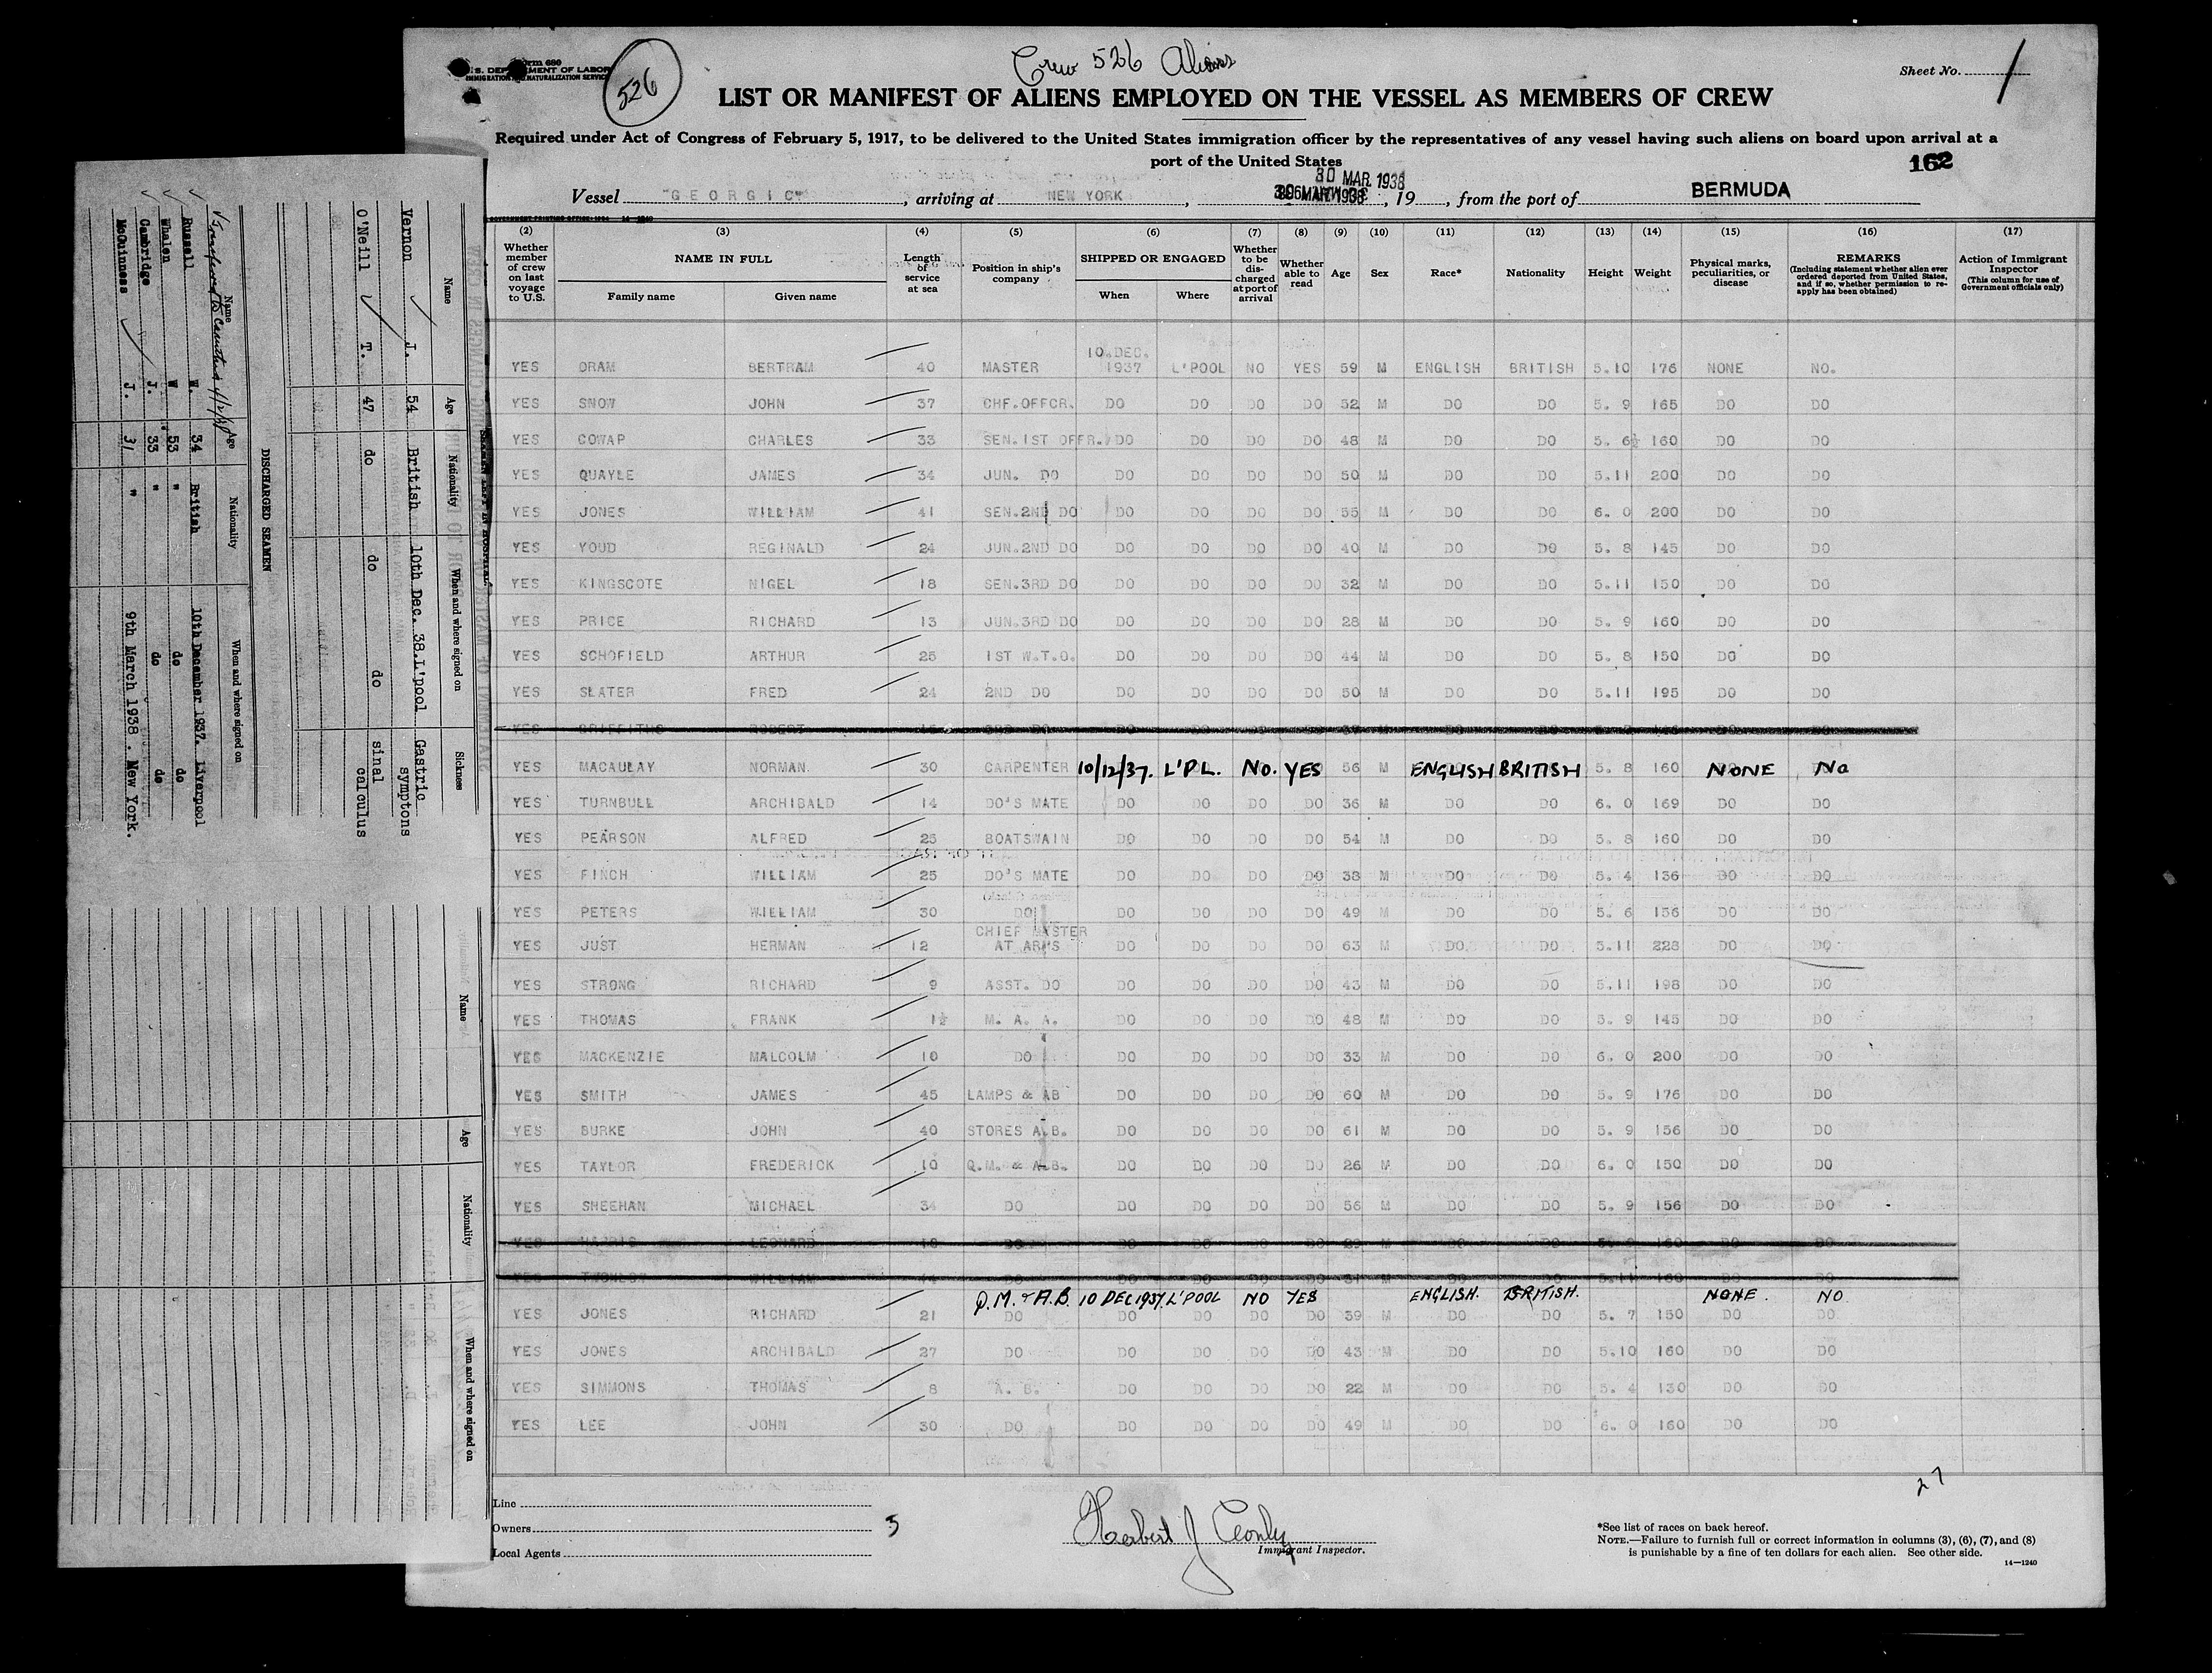 Crew 526 Aliens
Form 680
U.S. DEPARTMENT OF LABOR
IMMIGRATION AND NATURALIZATION SERVICE
526
Sheet No. 1
LIST OR MANIFEST OF ALIENS EMPLOYED ON THE VESSEL AS MEMBERS OF CREW
Required under Act of Congress of February 5, 1917, to be delivered to the United States immigration officer by the representatives of any vessel having such aliens on board upon arrival at a
port of the United States
162
30 MAR 1938
Vessel "GEORGIC", arriving at NEW YORK, , 19 , from the port of BERMUDA
(2) (3) (4) (5) (6) (7) (8) (9) (10) (11) (12) (13) (14) (15) (16) (17)
Whether member of crew on last voyage to U.S. NAME IN FULL Family name Given name Length of service at sea Position in ship's company SHIPPED OR ENGAGED When Where Whether to be discharged at port of arrival Whether able to read Age Sex Race* Nationality Height Weight Physical marks, peculiarities, or disease REMARKS (Including statement whether alien ever ordered deported from United States, and if so, whether permission to reapply has been obtained) Action of Immigrant Inspector (This column for use of Government officials only)
YES ORAM BERTRAM 40 MASTER 10.DEC. 1937 L'POOL NO YES 59 M ENGLISH BRITISH 5.10 176 NONE NO.
YES SNOW JOHN 37 CHF.OFFCR. DO DO DO DO 52 M DO DO 5. 9 165 DO DO
YES COWAP CHARLES 33 SEN.1ST OFFR. DO DO DO DO 48 M DO DO 5. 6½ 160 DO DO
YES QUAYLE JAMES 34 JUN. DO DO DO DO DO 50 M DO DO 5.11 200 DO DO
YES JONES WILLIAM 41 SEN.2ND DO DO DO DO DO 55 M DO DO 6. 0 200 DO DO
YES YOUD REGINALD 24 JUN.2ND DO DO DO DO DO 40 M DO DO 5. 8 145 DO DO
YES KINGSCOTE NIGEL 18 SEN.3RD DO DO DO DO DO 32 M DO DO 5.11 150 DO DO
YES PRICE RICHARD 13 JUN.3RD DO DO DO DO DO 28 M DO DO 5. 9 160 DO DO
YES SCHOFIELD ARTHUR 25 1ST W.T.O. DO DO DO DO 44 M DO DO 5. 8 150 DO DO
YES SLATER FRED 24 2ND DO DO DO DO DO 50 M DO DO 5.11 195 DO DO
YES GRIFFITHS ROBERT
YES MACAULAY NORMAN. 30 CARPENTER 10/12/37. L'P L. NO. YES 56 M ENGLISH BRITISH 5. 8 160 NONE NO
YES TURNBULL ARCHIBALD 14 DO'S MATE DO DO DO DO 36 M DO DO 6. 0 169 DO DO
YES PEARSON ALFRED 25 BOATSWAIN DO DO DO DO 54 M DO DO 5. 8 160 DO DO
YES FINCH WILLIAM 25 DO'S MATE DO DO DO DO 38 M DO DO 5. 4 136 DO DO
YES PETERS WILLIAM 30 DO DO DO DO DO 49 M DO DO 5. 6 156 DO DO
YES JUST HERMAN 12 CHIEF MASTER AT ARMS DO DO DO DO 63 M DO DO 5.11 228 DO DO
YES STRONG RICHARD 9 ASST. DO DO DO DO DO 43 M DO DO 5.11 198 DO DO
YES THOMAS FRANK 1½ M. A. A. DO DO DO DO 48 M DO DO 5. 9 145 DO DO
YES MACKENZIE MALCOLM 10 DO DO DO DO DO 33 M DO DO 6. 0 200 DO DO
YES SMITH JAMES 45 LAMPS & AB DO DO DO DO 60 M DO DO 5. 9 176 DO DO
YES BURKE JOHN 40 STORES A.B. DO DO DO DO 61 M DO DO 5. 9 156 DO DO
YES TAYLOR FREDERICK 10 Q.M. & A.B. DO DO DO DO 26 M DO DO 6. 0 150 DO DO
YES SHEEHAN MICHAEL 34 DO DO DO DO DO 56 M DO DO 5. 9 156 DO DO
YES HARRIS LEONARD 18 DO DO DO DO DO M DO DO 160 DO DO
YES WILLIAM 14 DO DO DO DO DO 31 M DO DO 5.11 160 DO DO
Q.M. & A.B. 10 DEC 1937. L'POOL NO YES ENGLISH. BRITISH. NONE. NO
YES JONES RICHARD 21 DO DO DO DO DO 39 M DO DO 5. 7 150 DO DO
YES JONES ARCHIBALD 27 DO DO DO DO DO 43 M DO DO 5.10 160 DO DO
YES SIMMONS THOMAS 8 A. B. DO DO DO DO 22 M DO DO 5. 4 130 DO DO
YES LEE JOHN 30 DO DO DO DO DO 49 M DO DO 6. 0 160 DO DO
27
Line
Owners
Local Agents
5
Immigrant Inspector.
*See list of races on back hereof.
NOTE.—Failure to furnish full or correct information in columns (3), (6), (7), and (8)
is punishable by a fine of ten dollars for each alien. See other side.
14—1240
Name Age Nationality When and where signed on Sickness
Vernon J. 54 British 10th Dec. 38. L'pool Gastric symptons
O'Neill T. 47 do do do sinal calculus
DISCHARGED SEAMEN
Name Age Nationality When and where signed on
Russell W. 34 British 10th December 1937. Liverpool
Whalen W 53 " do do
Cambridge J. 33 " do do
McGuinness J. 31 " 9th March 1938. New York.
Name Age Nationality When and where signed on